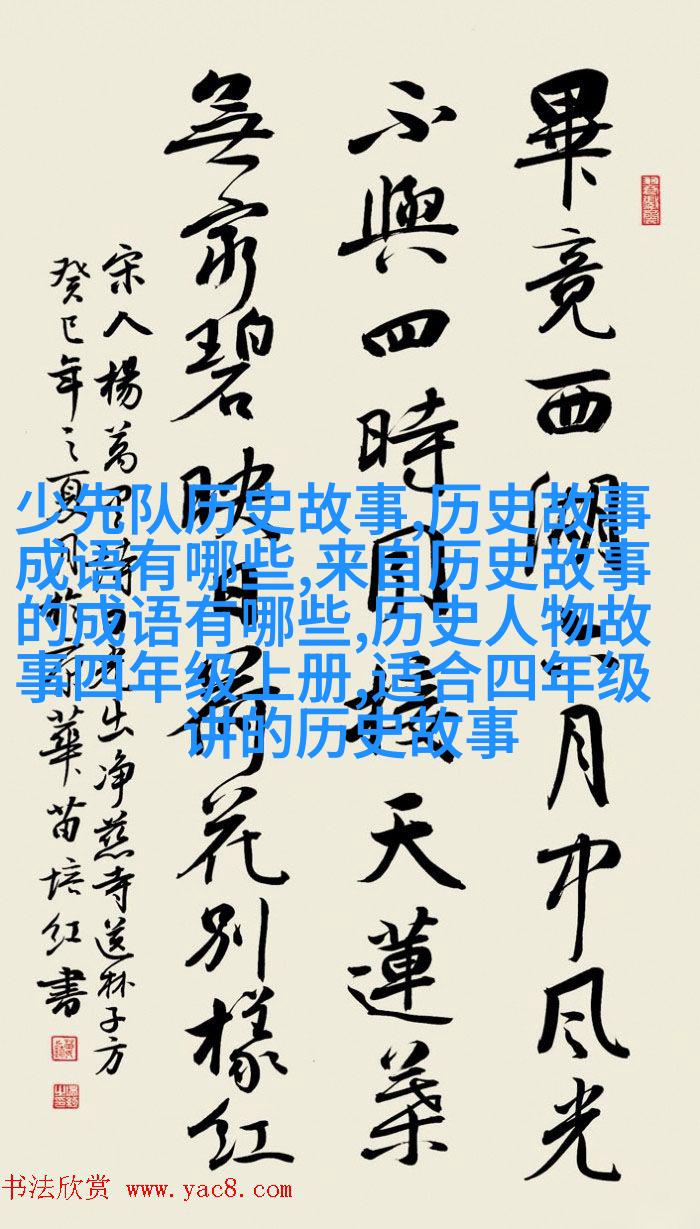 畢竟西湖六月中风光
不與四時同接天蓮葉
無窮碧映日荷花别樣红
宋人楊萬里詩曉出净慈寺送林子方
癸巳年之夏月於京華苗培红書
少先队历史故事,历史故事
成语有哪些,来自历史故事
的成语有哪些,历史人物故
事四年级上册,适合四年级
讲的历史故事
书法欣赏 www.yac8.com